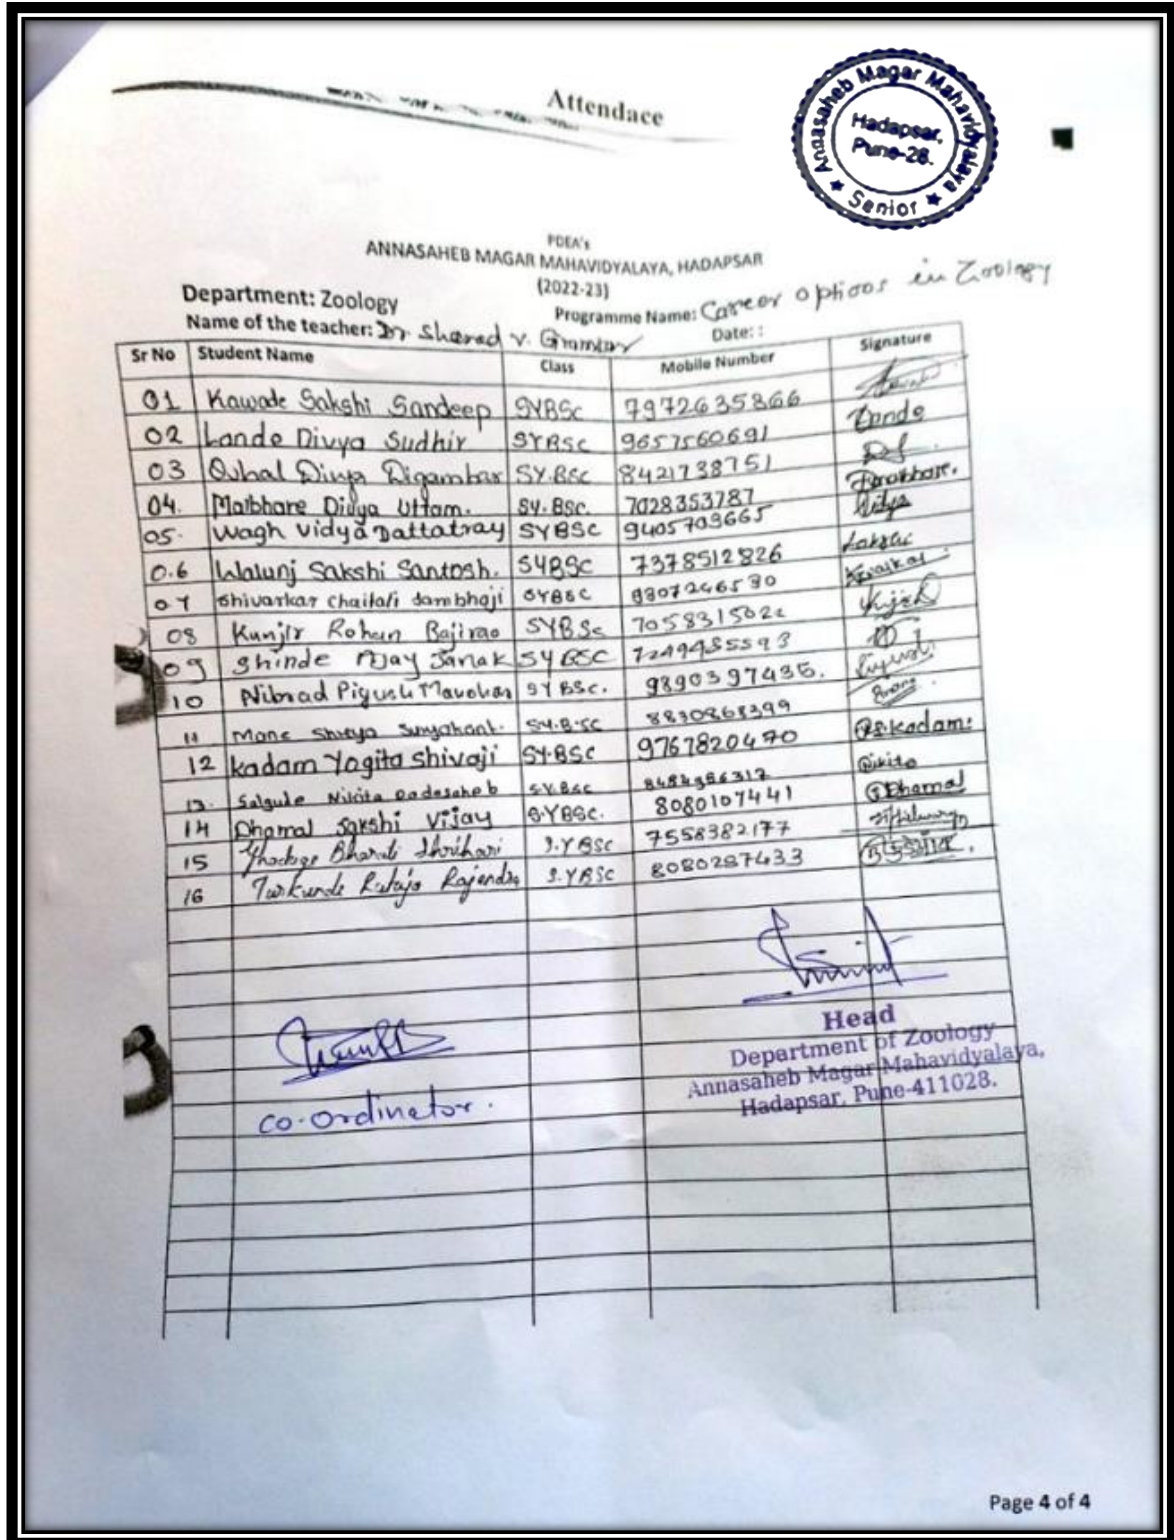 Attendace
Annasaheb Magar Mahavidyalaya
Hadapsar,
Pune-28.
★ Senior ★
PDEA's
ANNASAHEB MAGAR MAHAVIDYALAYA, HADAPSAR
(2022-23)
Department: Zoology
Programme Name: Career options in Zoology
Name of the teacher: Dr Sharad v.
Date: :
Sr No Student Name Class Mobile Number Signature
01 Kawade Sakshi Sandeep SYBSc 7972635866
02 Lande Divya Sudhir SYBSc 9657560691 Lande
03 Divya Digambar SY.BSc 8421738751
04. Maibhare Divya Uttam. SY.BSc. 7028353787
05. Wagh Vidya Dattatray SYBSC 9405709665 Vidya
0.6 Walunj Sakshi Santosh. SYBSC 7378512826
07 Shivarkar Chaitali Sambhaji SYBSC
08 Kunjir Rohan Bajirao SYBSc
09 Shinde Ajay Janak SYBSC
10 Nibrad Piyush SYBSc. 9890397435.
11 Mane SY.B.SC 8830868399
12 Kadam Yogita Shivaji SY.BSC 9767820470
13. Nikita Dadasaheb S.Y.BSC
14 Dhamal Sakshi Vijay S.YBSC. 8080107441 Dhamal
15 Bharati Shrihari S.YBSC 7558382177
16 Rajendra S.YBSC 8080287433
Head
Department of Zoology
Annasaheb Magar Mahavidyalaya,
Hadapsar, Pune-411028.
Co-Ordinator.
Page 4 of 4